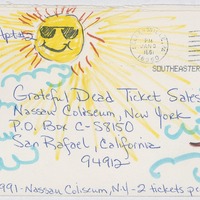 SOUTHEASTER
Grateful Dead Ticket Sales
Nassau Coliseum, New York
P.O. Box C-S8150
San Rafael, California
94912
991-Nassau Coliseum, N.Y-2 tickets pe